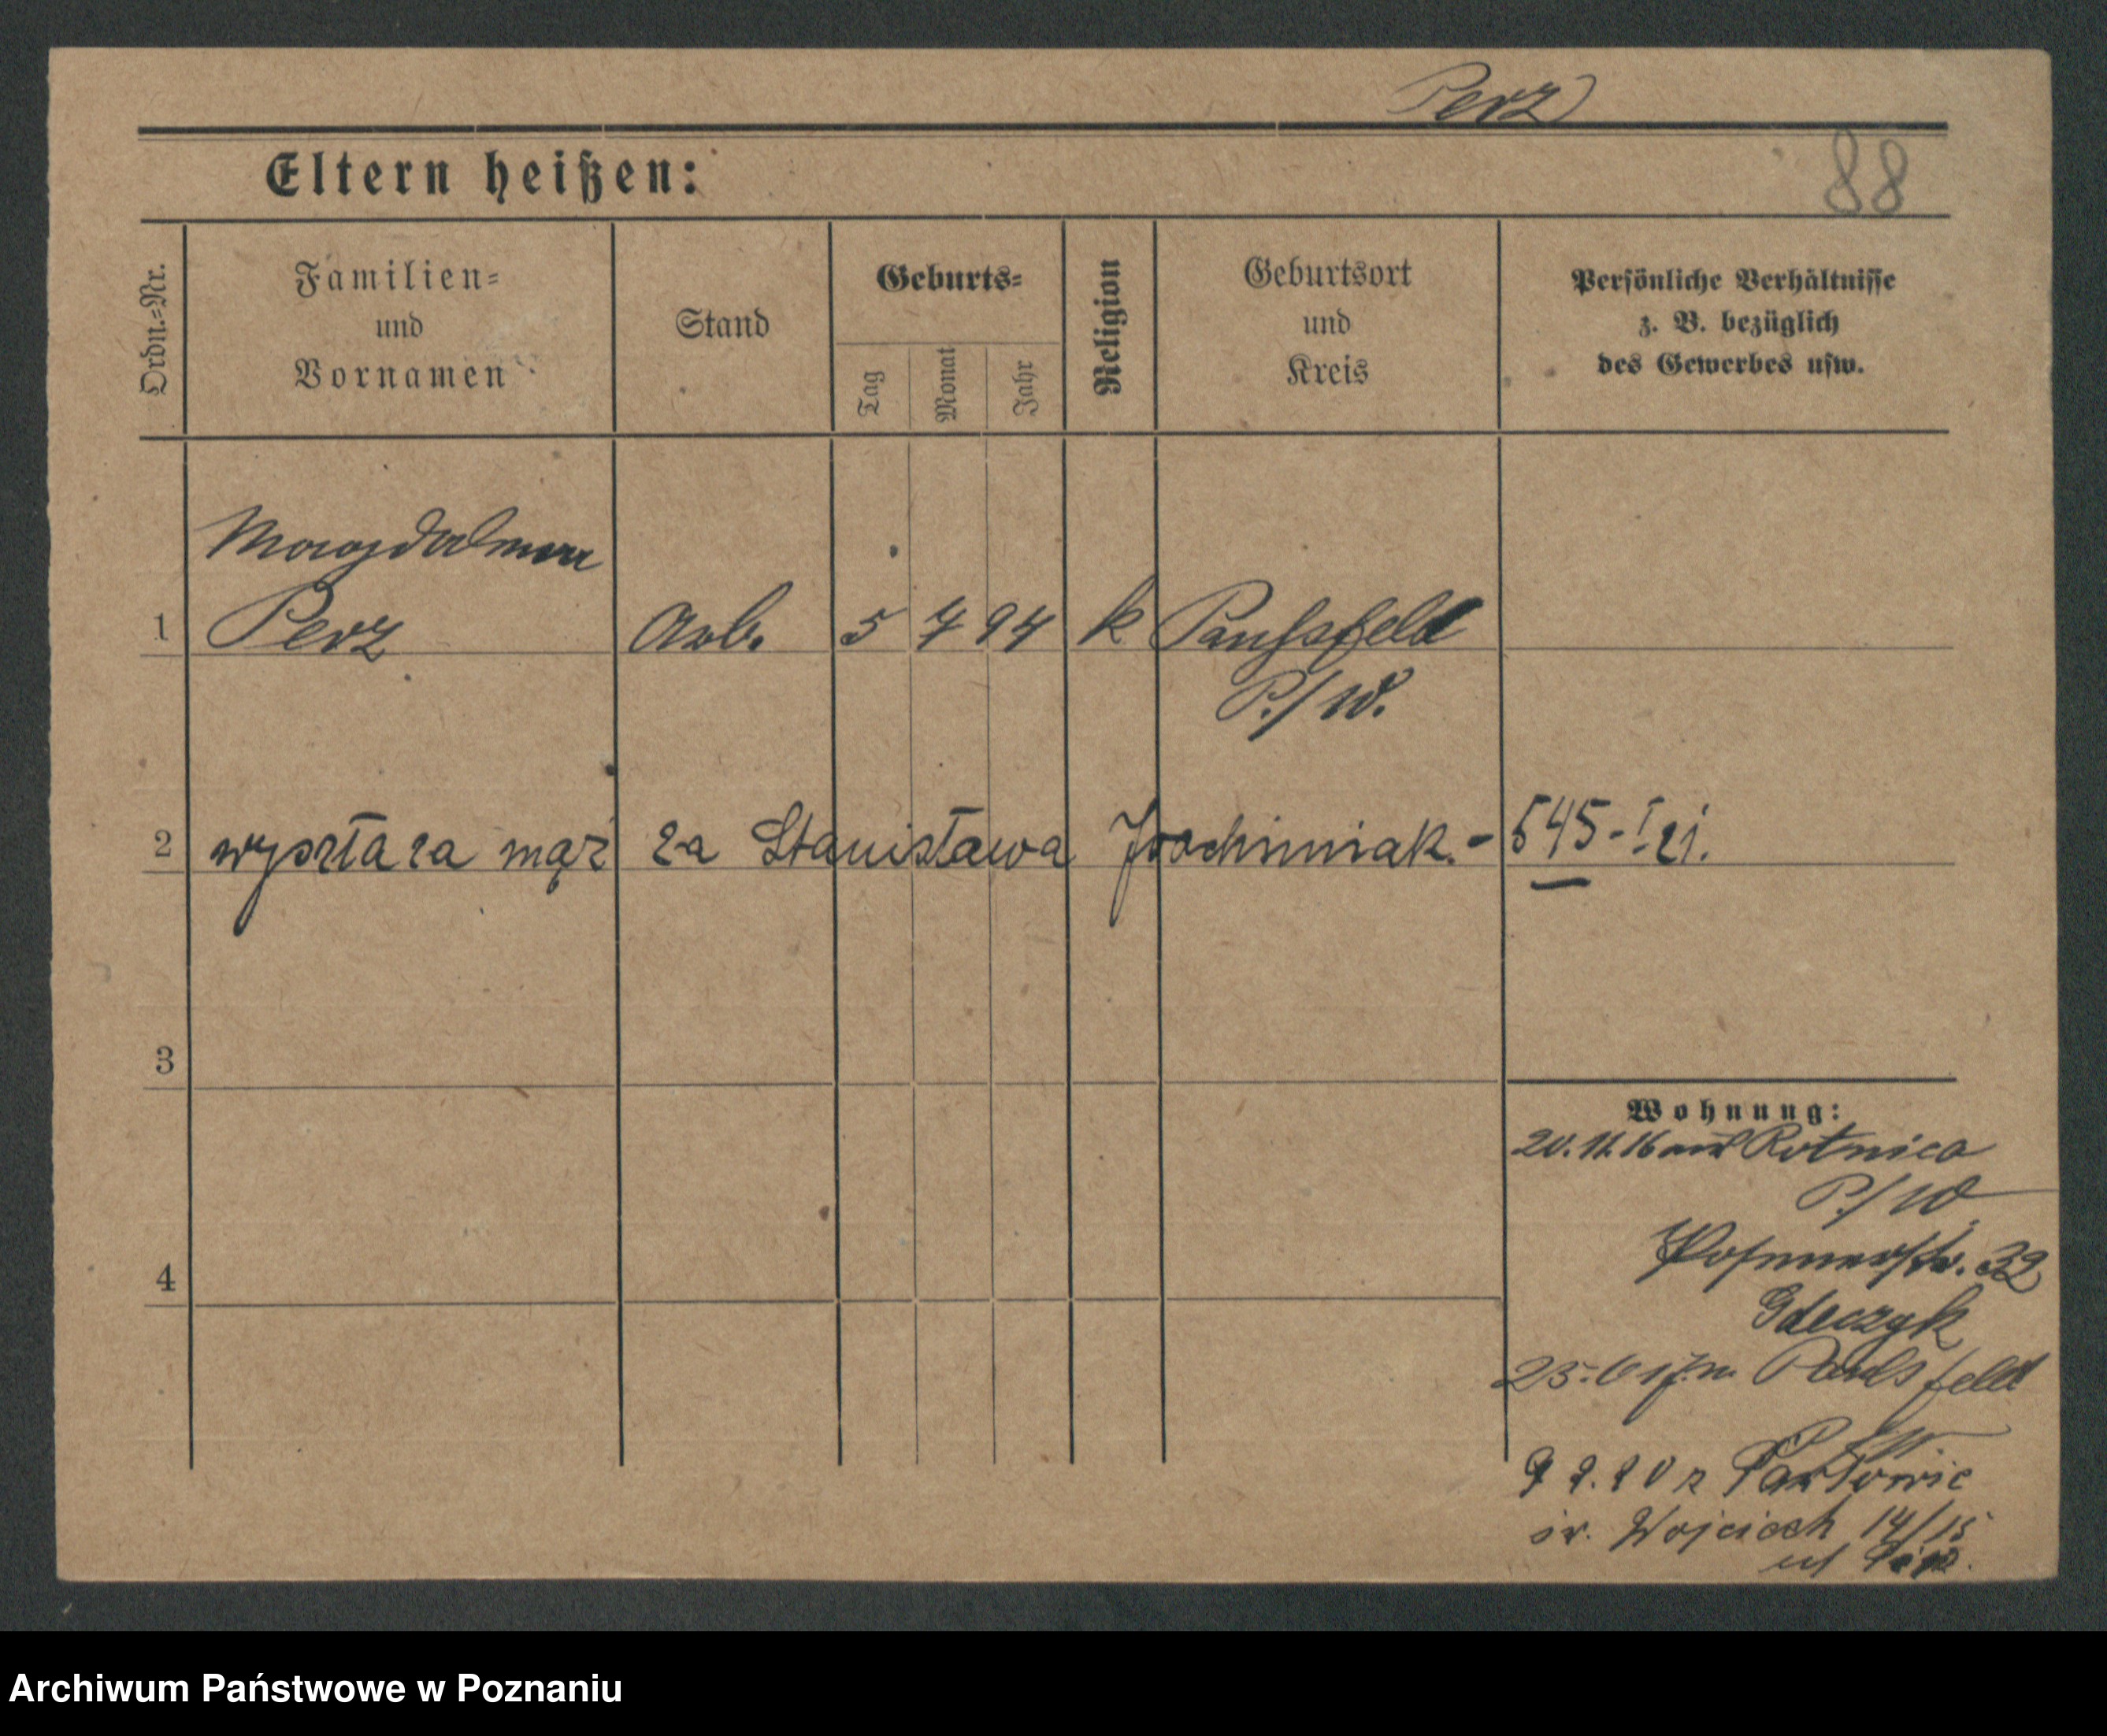 Perz
88
Eltern heißen:
Ordn.-Nr.
Familien-
und
Vornamen
Stand
Geburts-
Tag
Monat
Jahr
Religion
Geburtsort
und
Kreis
Persönliche Verhältnisse
z. B. bezüglich
des Gewerbes usw.
Magdalena
1 Perz Arb. 5 7 94 k Paulsfeld
P./W.
2 wyszła za mąż za Stanisława Joachimiak. - 545-
3
Wohnung:
20.11.16 Rotnica
P./W.
Posenerstr. 32
4
Gdeczyk
23. 6 17 n. Paulsfeld
P./W.
20 z Pawłowic
św. Wojciech 14/15
Archiwum Państwowe w Poznaniu